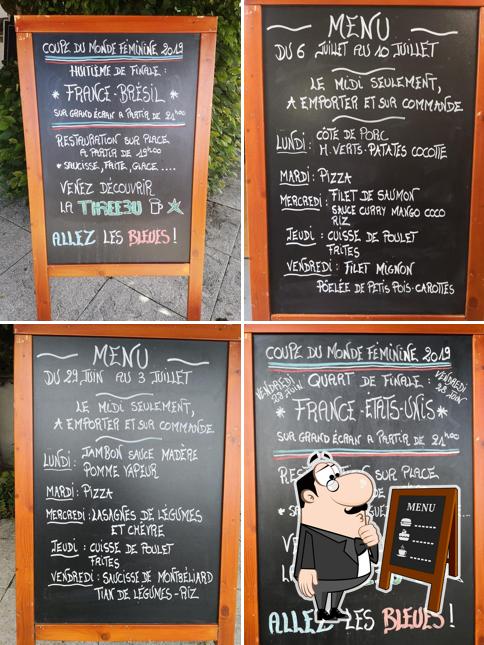 COUPE DU MONDE FÉMININE 2019
HUITIÈME DE FINALE :
* FRANCE - BRÉSIL *
SUR GRAND ÉCRAN A PARTIR DE 21h00
RESTAURATION SUR PLACE
A PARTIR DE 19h00
* SAUCISSE, FRITE, GLACE ....
VENEZ DÉCOUVRIR
LA TIREE3U
ALLEZ LES BLEUES !
MENU
DU 6 JUILLET AU 10 JUILLET
LE MIDI SEULEMENT,
A EMPORTER ET SUR COMMANDE
LUNDI : CÔTE DE PORC
H. VERTS - PATATES COCOTTE
MARDI : PIZZA
MERCREDI : FILET DE SAUMON
SAUCE CURRY MANGO COCO
RIZ
JEUDI : CUISSE DE POULET
FRITES
VENDREDI : FILET MIGNON
POÊLÉE DE PETIS POIS - CAROTTES
MENU
DU 29 JUIN AU 3 JUILLET
LE MIDI SEULEMENT,
A EMPORTER ET SUR COMMANDE
LUNDI : JAMBON SAUCE MADERE
POMME VAPEUR
MARDI : PIZZA
MERCREDI : LASAGNES DE LÉGUMES
ET CHÈVRE
JEUDI : CUISSE DE POULET
FRITES
VENDREDI : SAUCISSE DE MONTBÉLIARD
TIAN DE LÉGUMES - RIZ
COUPE DU MONDE FÉMININE 2019
VENDREDI 28 JUIN
QUART DE FINALE :
VENDREDI 28 JUIN
* FRANCE - ÉTATS-UNIS *
SUR GRAND ÉCRAN A PARTIR DE 21h00
SUR PLACE
MENU
ALLEZ LES BLEUES !